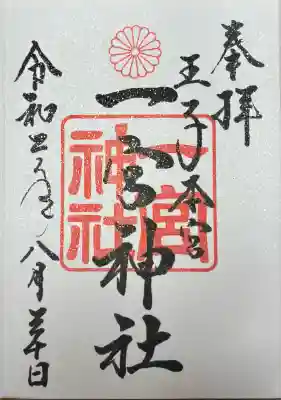 奉拝
王子本宮
一宮神社
一宮神社
令和五年八月三十日